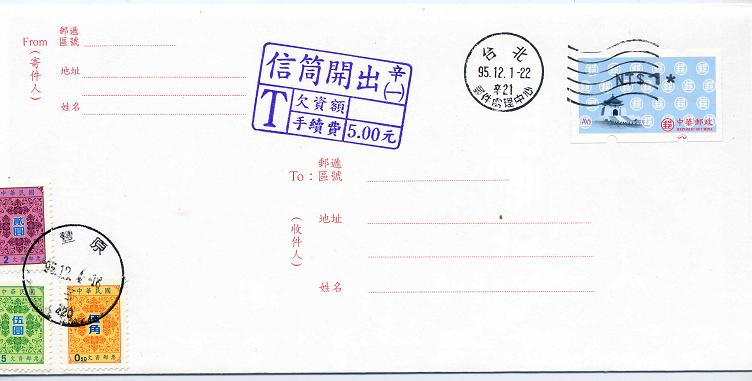 From
(寄件人)
郵遞
區號
地址
姓名
信筒開出
辛
(一)
T
欠資額
手續費 5.00元
台北
95.12.1-22
辛21
NT$1*
中華郵政
REPUBLIC OF CHINA
To:
(收件人)
郵遞
區號
地址
姓名
中華民國
貳圓
2
豐原
95.12.4
中華民國
伍圓
5 欠資郵票
中華民國
伍角
0.50 欠資郵票